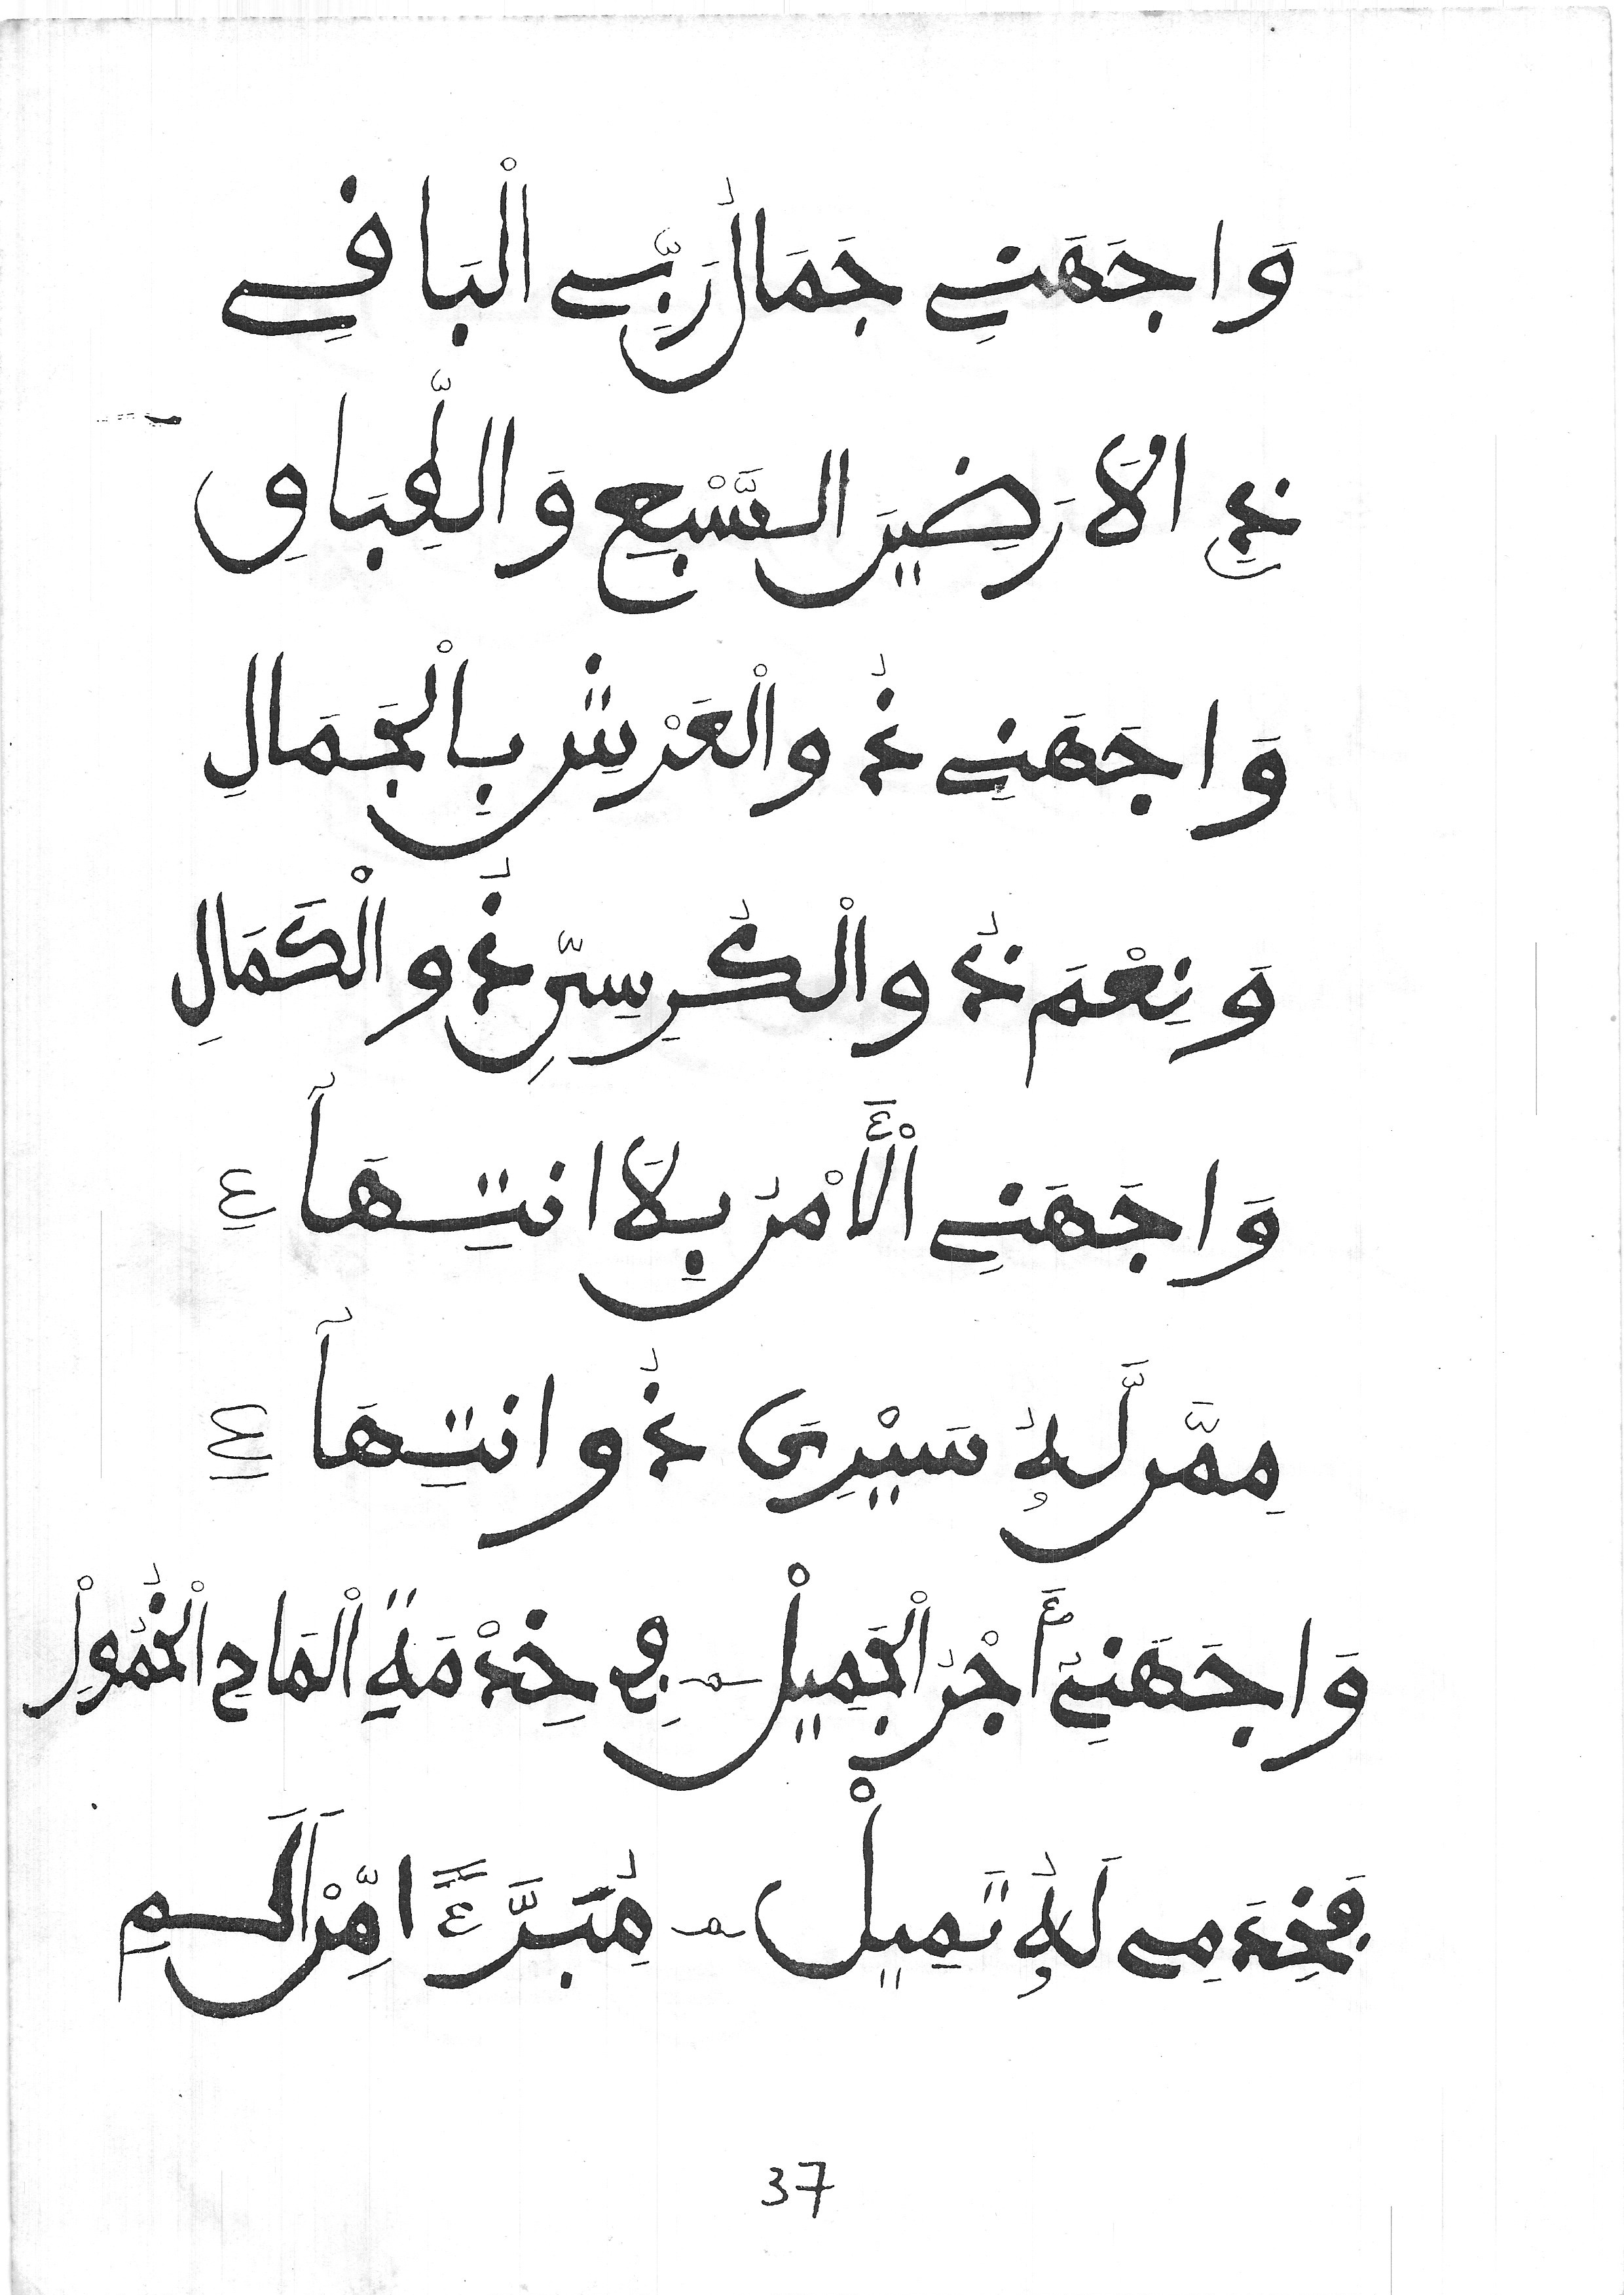 وَاجَهَنِي جَمَالُ رَبِّي الْبَاقِي
ذِي الَارَضِينَ السَّبْعِ وَالطِّبَاقِ
وَاجَهَنِي ذُو الْعَرْشِ بِالْجَمَالِ
وَنِعْمَ ذُو الْكُرْسِيِّ ذُو الْكَمَالِ
وَاجَهَنِي الْأَمْرُ بِلَا انْتِهَاءِ
مِمَّن لَهُ سَيْرِى ذُو انْتِهَاءٍ
وَاجَهَنِي أَجْرُ الْجَمِيلْ فِي خِدْمَةِ الْمَاحِ الْخُمُولْ
فَخِدْمَتِي لَهُ تَمِيلْ مُبَرَّءًا مِّنْ أَلَمِ
37